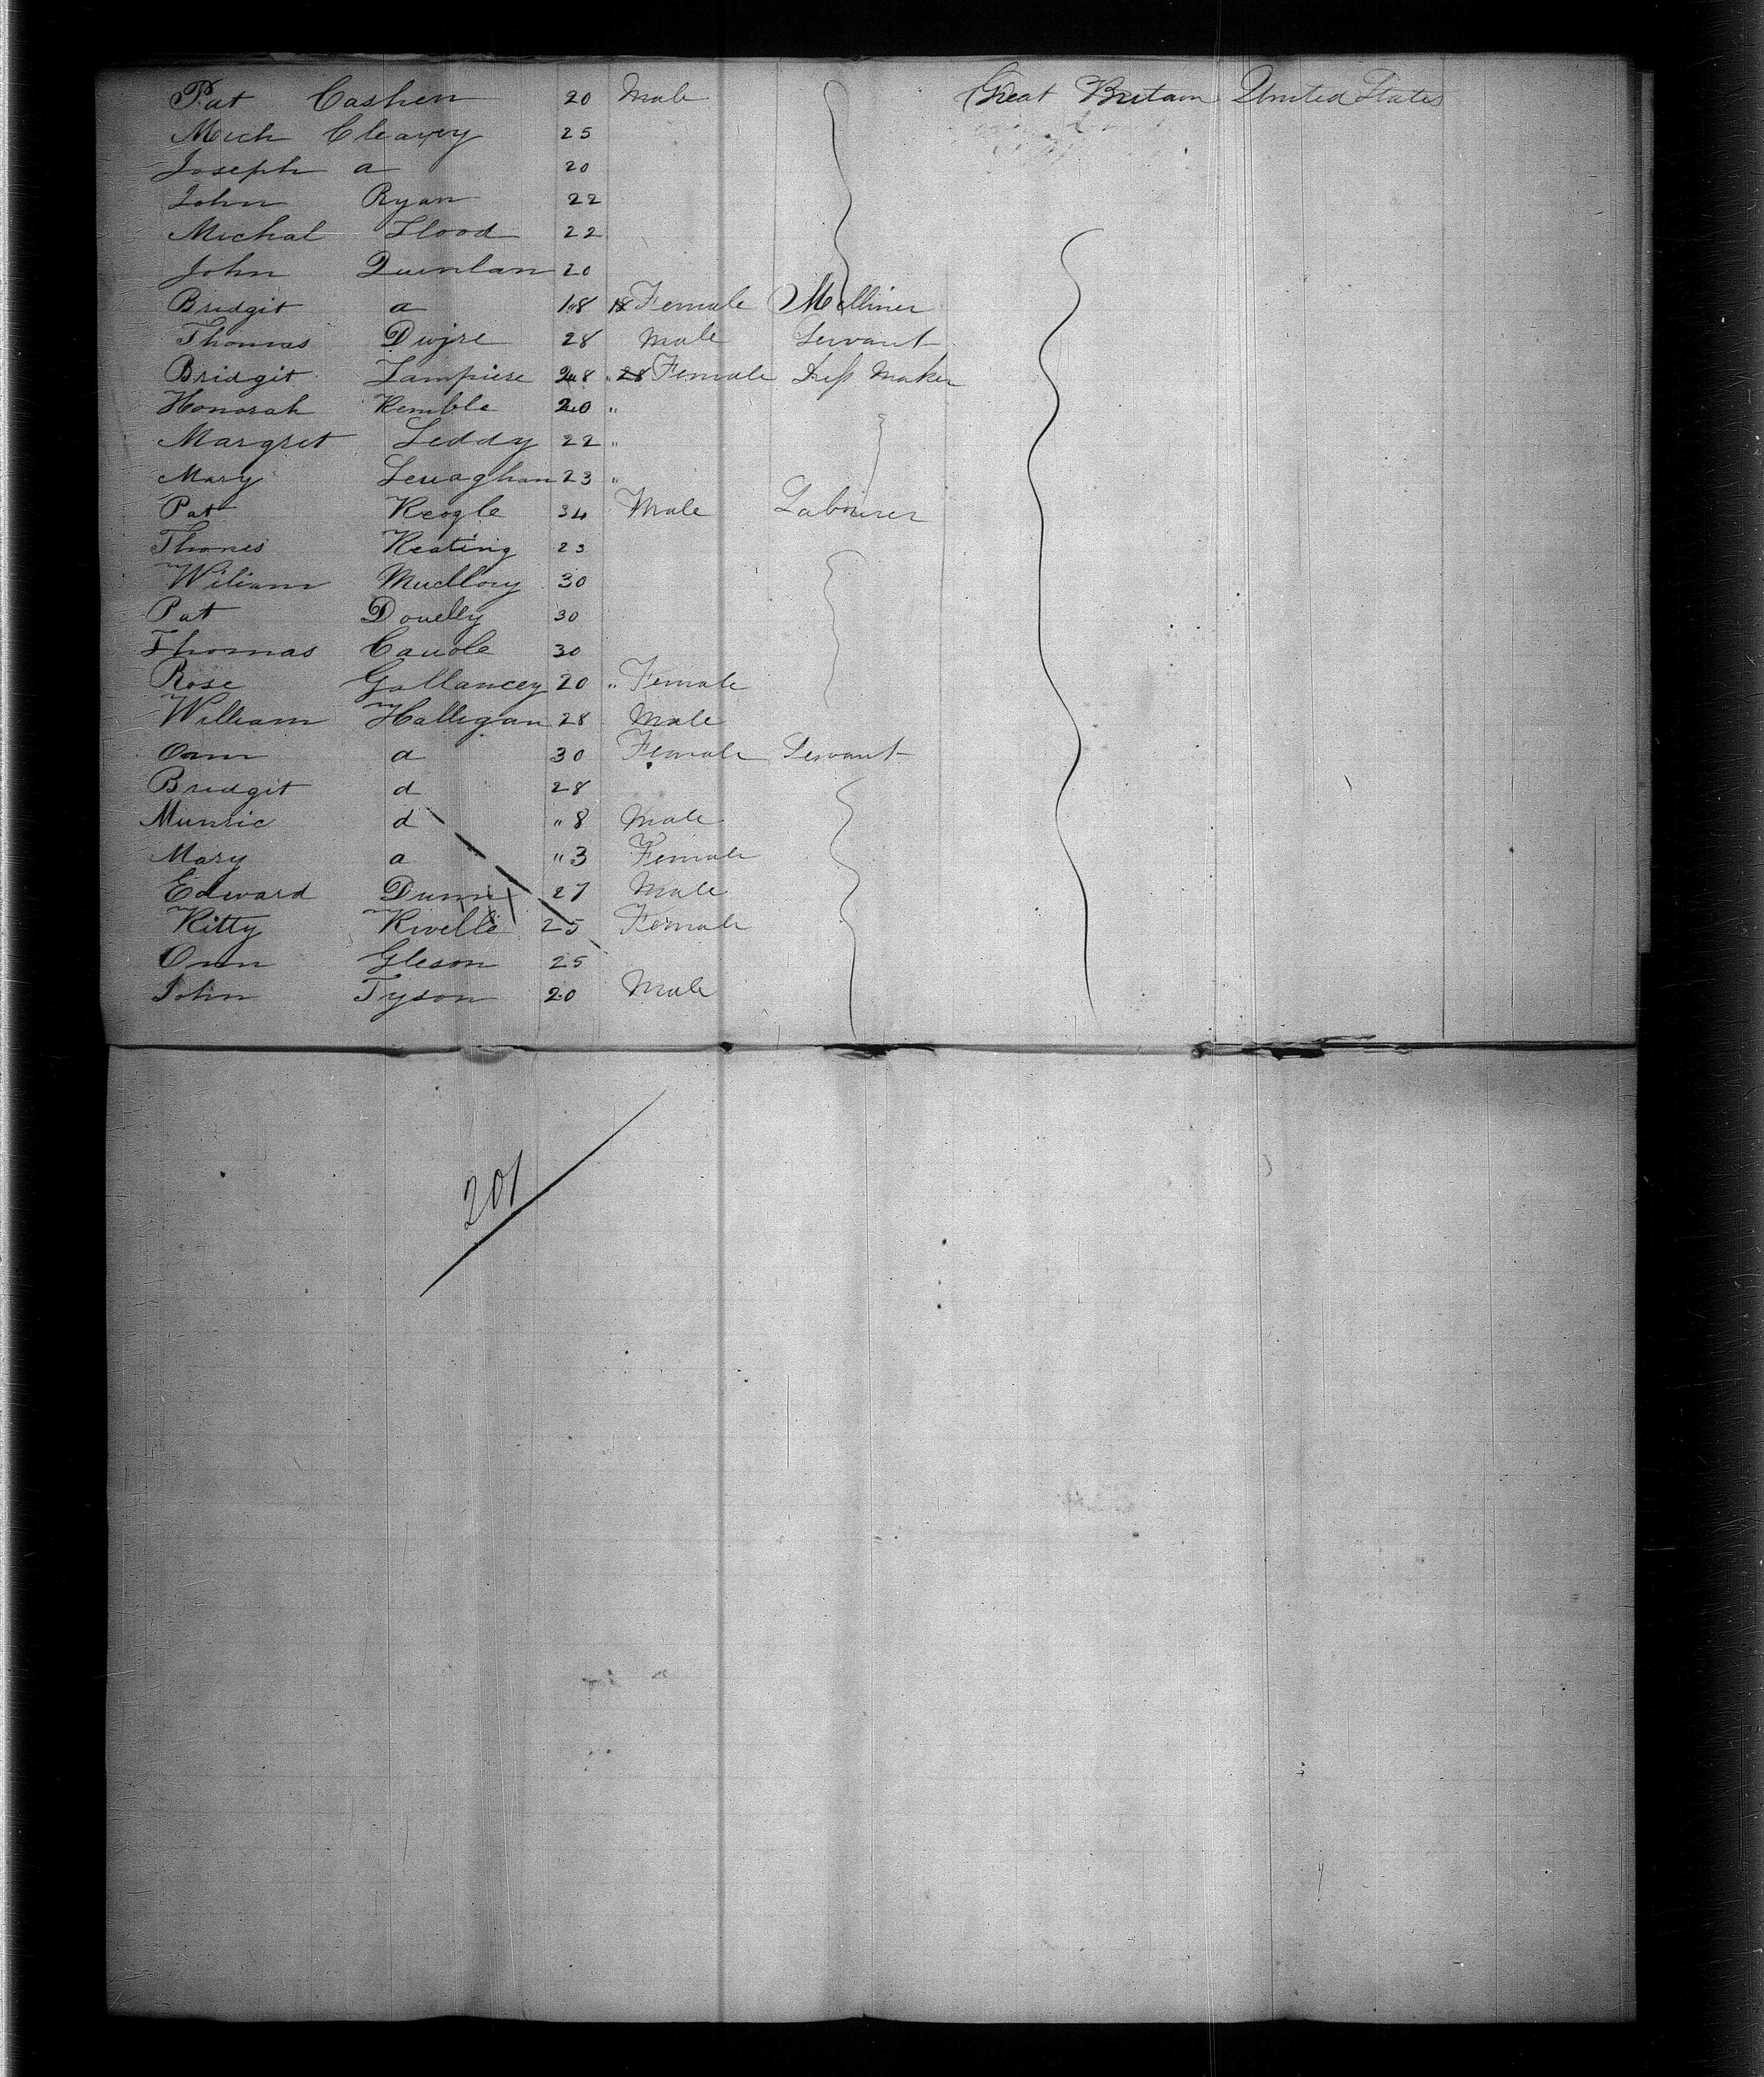 Pat Cashen 20 Male Great Britain United States
Mich Cleavey 25
Joseph a 20
John Ryan 22
Michal Flood 22
John Quinlan 20
Bridgit a 18 18 Female Milliner
Thomas Dwjre 28 Male Servant
Bridgit Lampiere 28 " 28 Female Dress Maker
Honorah Kemble 20 "
Margret Leddy 22 "
Mary Lenaghan 23 "
Pat Keogle 34 Male Labourer
Thomes Keating 23
Wiliam 30
Pat Donelly 30
Thomas 30
Rose Gallancey 20 " Female
William Halligan 28 Male
Ann a 30 Female Servant
Bridgit d 28
d " 8 Male
Mary a " 3 Female
Edward Dunn 27 Male
Kitty Rivelle 25 Female
Ann Gleson 25
John Tyson 20 Male
201